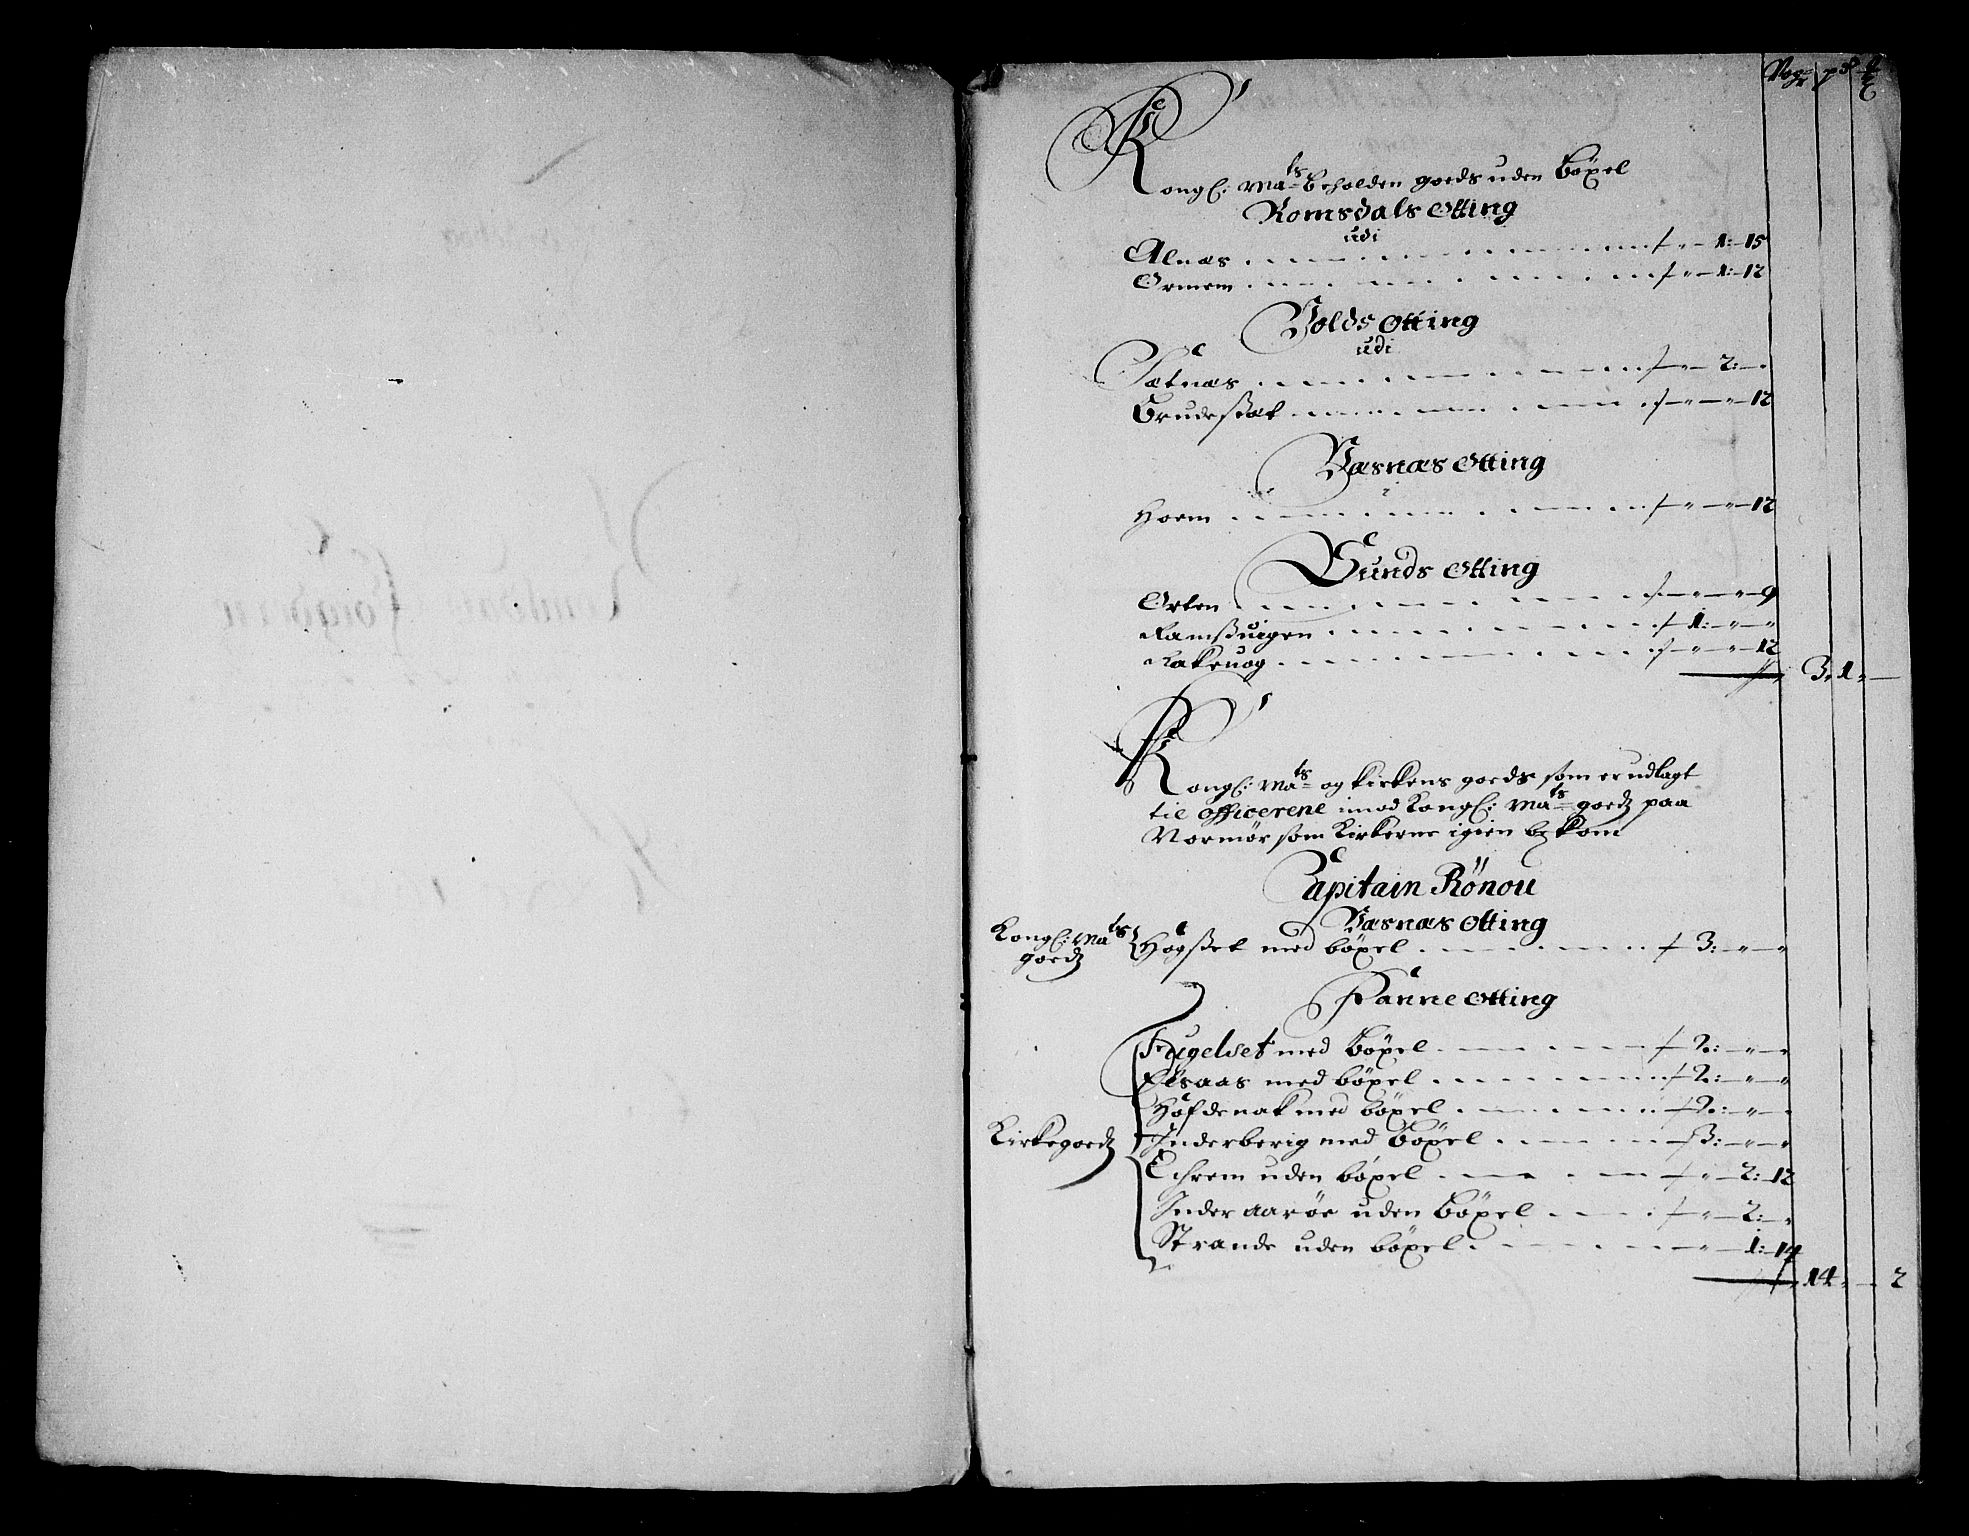 Kongl: Mats beholden goeds uden böxel
Romsdals Otting
udi
Alnæs . . . . . 1: 15
Ormem . . . . . 1: 12
Volds Otting
udi
Sætnæs . . . . . 2:
Brudesæt . . . . . 12
Væsnæs Otting
Horm . . . . . 12
Bunds Otting
Orten . . . . . 9
Ramßuigen . . . . . 1:
Rakeuog . . . . . 12
3 " 1 "
Kongl: Mats og kirkens goeds som er udlagt
til officerene imod Kongl: Mats goedz paa
Normør som Kirkerne igien bekom
Capitain Rönou
Væsnæs Otting
Kongl: Mats goedz
Högset med böxel . . . . . 3:
Fanne Otting
Kirkegoedz
Fugelset med böxel . . . . . 2:
Elsaas med böxel . . . . . 2:
Höfdenak med böxel . . . . . 2:
Inderberig med böxel . . . . . 3:
Echrem uden böxel . . . . . 2: 12
Inder aarøe uden böxel . . . . . 2:
Strande uden böxel . . . . . 1: 14
14 " 2